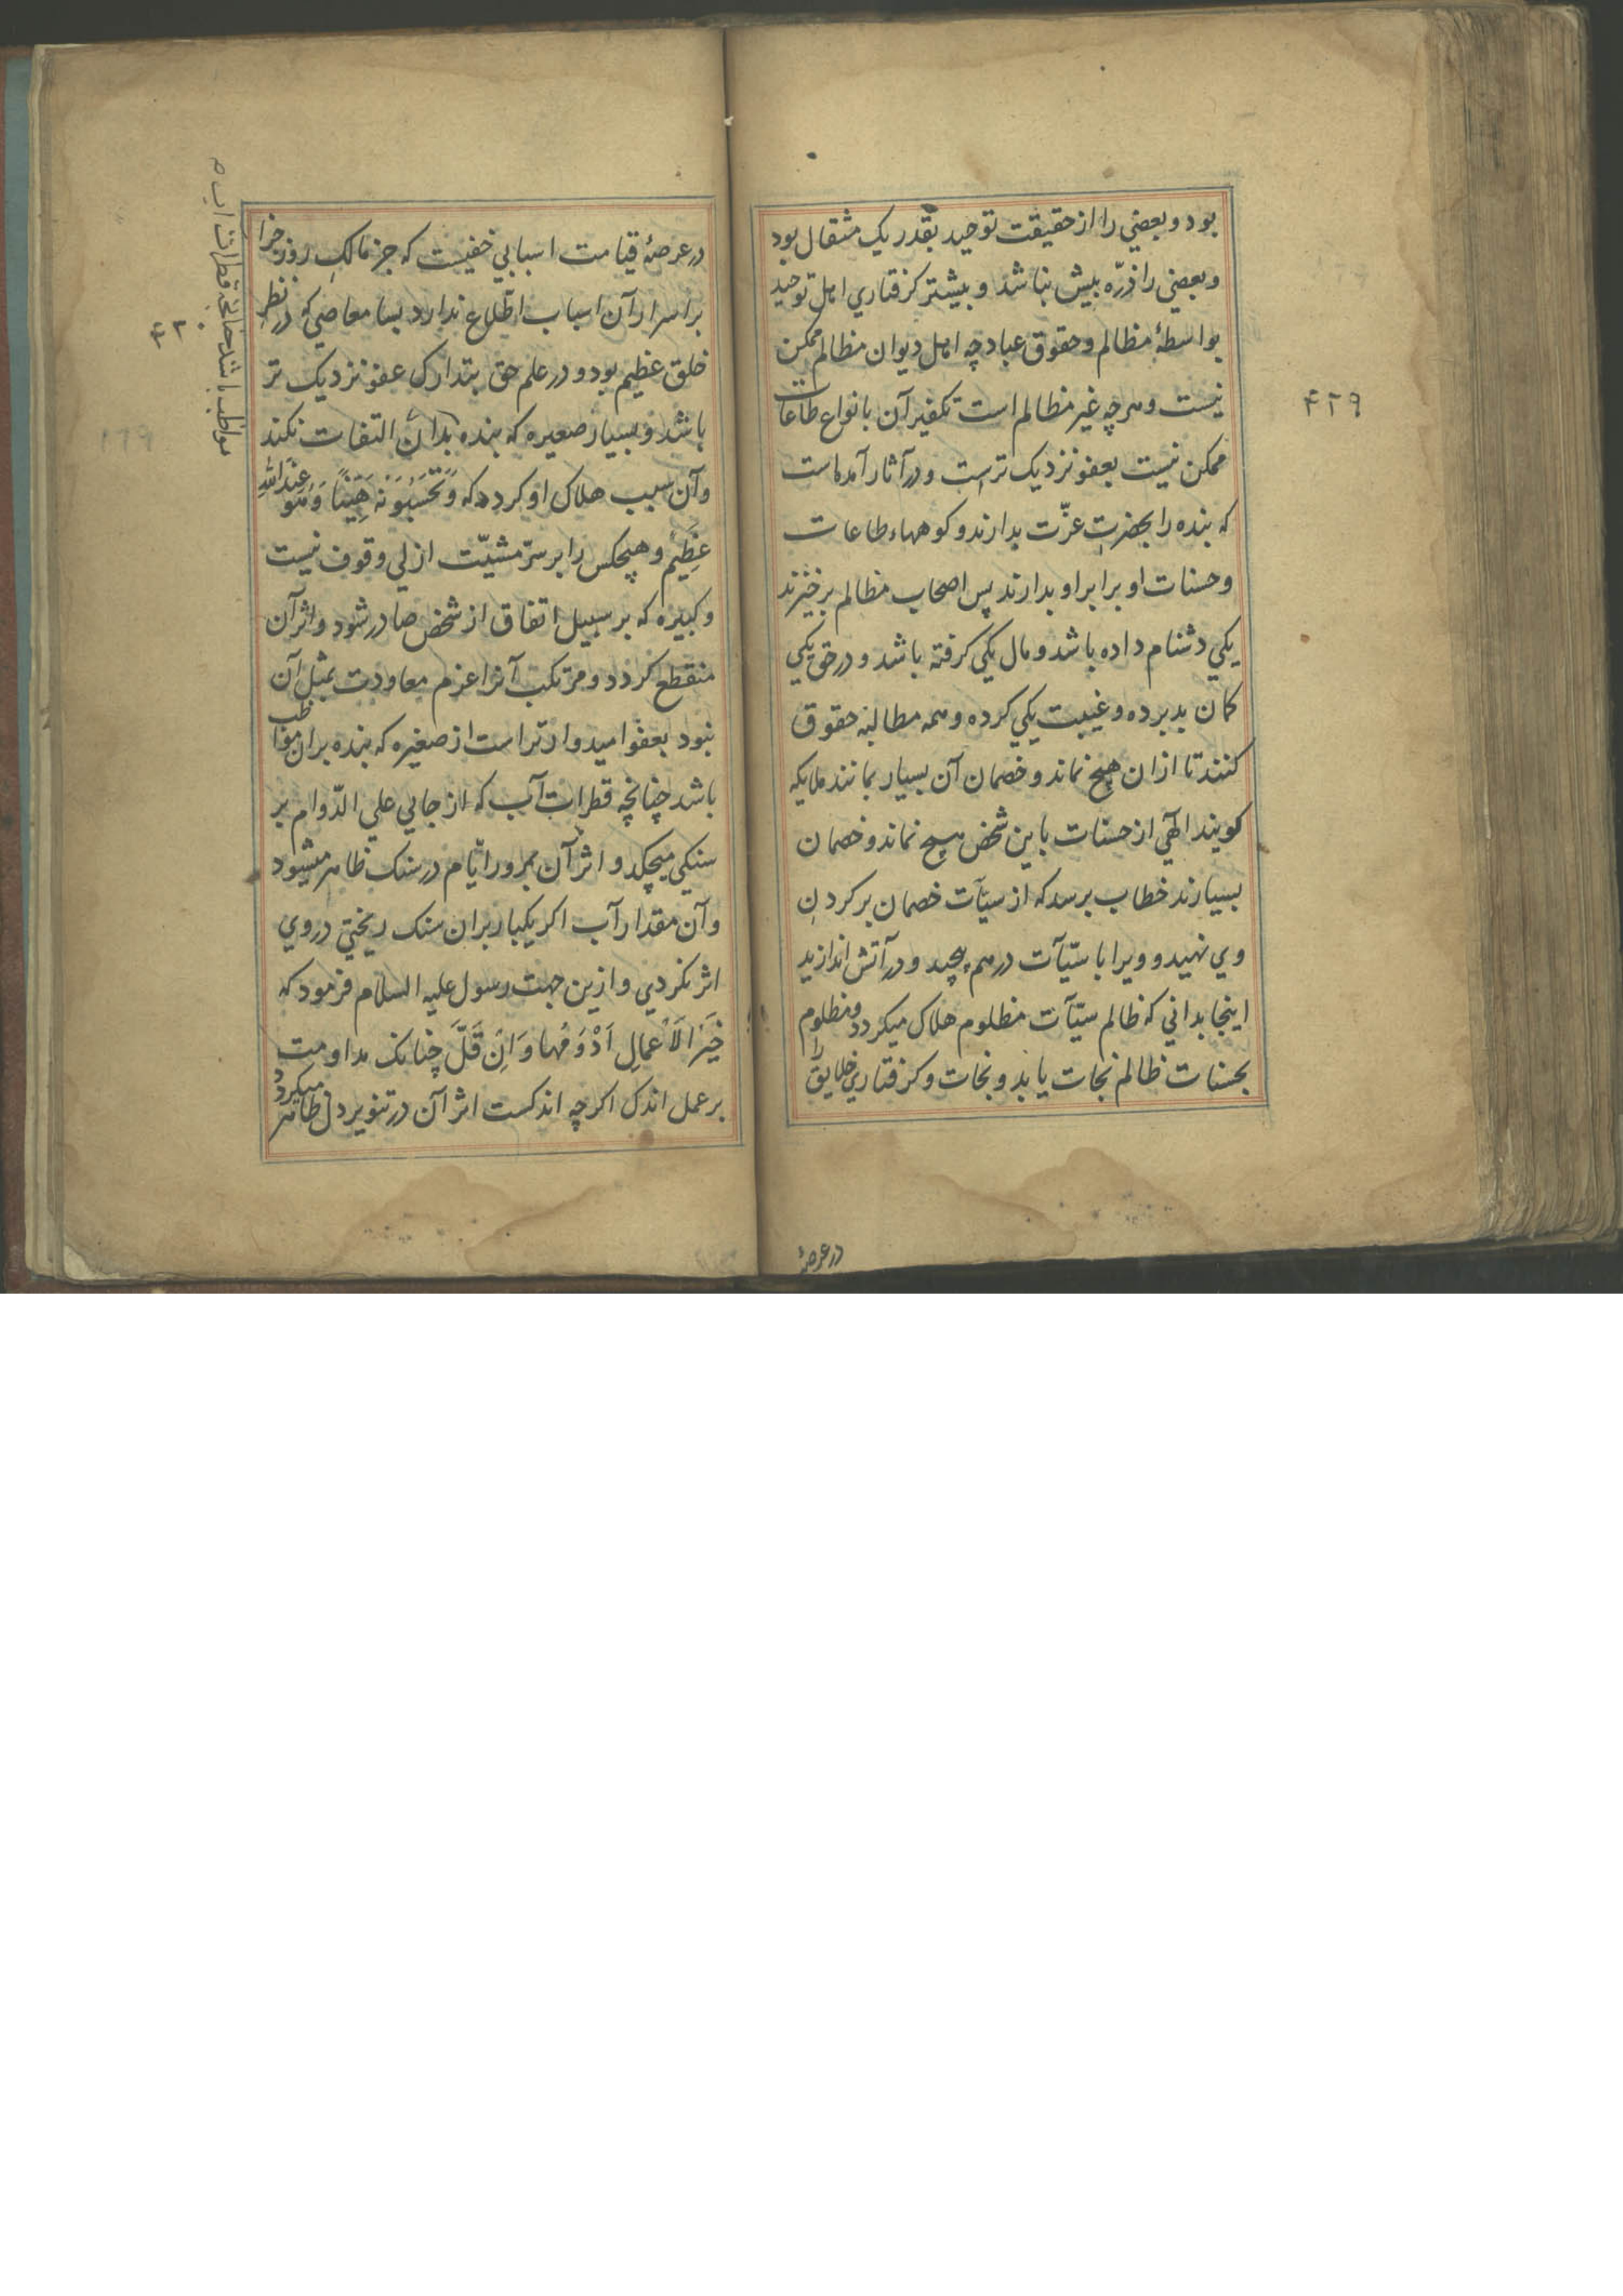 بود و بعضي را از حقیقت توحید بقدر یک مثقال بود
و بعضي را ذرّه بیش نباشد و بیشتر کرفتاري اهل توحید
بواسطۀ مظالم و حقوق عباد چه اهل دیوان مظالم ممکن
نیست و هر چه غیر مظالم است تکفیر آن بانواع طاعات
ممکن نیست بعفو نزدیک ترست و در آثار آمده است
که بنده را بحضرتِ عزّت بدارند و کوههاء طاعات
و حسنات او برابر او بدارند پس اصحاب مظالم برخیزند
یکي دشنام داده باشد و مال یکي کرفته باشد و در حق یکي
کمان بد برده و غیبت یکي کرده و همه مطالبه حقوق
کنند تا ازان هیچ نماند و خصمان آن بسیار بمانند ملایکه
کویند الهي از حسنات باین شخص هیچ نماند و خصمان
بسیارند خطاب برسد که از سیّآت خصمان بر کردنِ
وي نهید و ویرا با سیّآت درهم پیچید و در آتش اندازید
اینجا بداني که ظالم سیّآت مظلوم هلاک میکردد و مظلوم
بحسنات ظالم نجات یابد و نجات و کرفتاري خلایق را
در عرصۀ
۴۲۹
در عرصۀ قیامت اسبابي خفیست که جز مالکِ روز جزا
بر اسرار آن اسباب اطّلاع ندارد بسا معاصي که در نظرِ
خلق عظیم بود و در علم حق بتدارک عفو نزدیک تر
باشد و بسیار صغیره که بنده بدان التفات نکند
و آن سبب هلاک او کردد که وَ تَحْسَبُوْنَهُ هَیِّنًا وَ هُوَ عِنْدَ اللهِ
عَظِیْم و هیچکس را بر سرّ مشیّت ازلي وقوف نیست
و کبیره که بر سبیل اتفاق از شخص صادر شود و اثر آن
منقطع کردد و مرتکب آنرا عزم معاودت بمثل آن
نبود بعفو امیدوارتر است از صغیره که بنده بران مواظب
باشد چنانچه قطرات آب که از جایي علي الدّوام بر
سنکي میچکد و اثر آن بمرور ایّام در سنک ظاهر میشود
و آن مقدار آب اکر یکبار بران سنک ریختي در وي
اثر نکردي و ازین جهت رسول علیه السلام فرمود که
خَیْرُ الْاَعْمَالِ اَدْوَمُهَا وَ اِنْ قَلَّ چنانک مداومت
بر عمل اندک اکرچه اندکست اثر آن در تنویر دل ظاهر میکردد
مواظب باشد چنانچه قطرات آب
۴۳۰